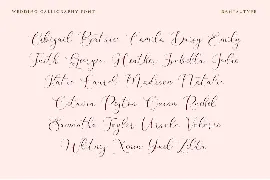 WEDDING CALLIGRAPHY FONT
Abigail Beatrice Camila Daisy Emily
Faith Georgia Heather Isabella Julia
Katie Laurel Madison Natalie
Octavia Peyton Queen Rachel
Samantha Taylor Ursula Valerie
Whitney Xenia Yael Zelda